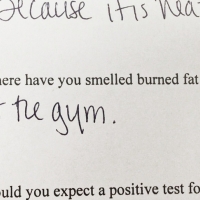 because it is hea
ere have you smelled burned fat
the gym.
uld you expect a positive test fo